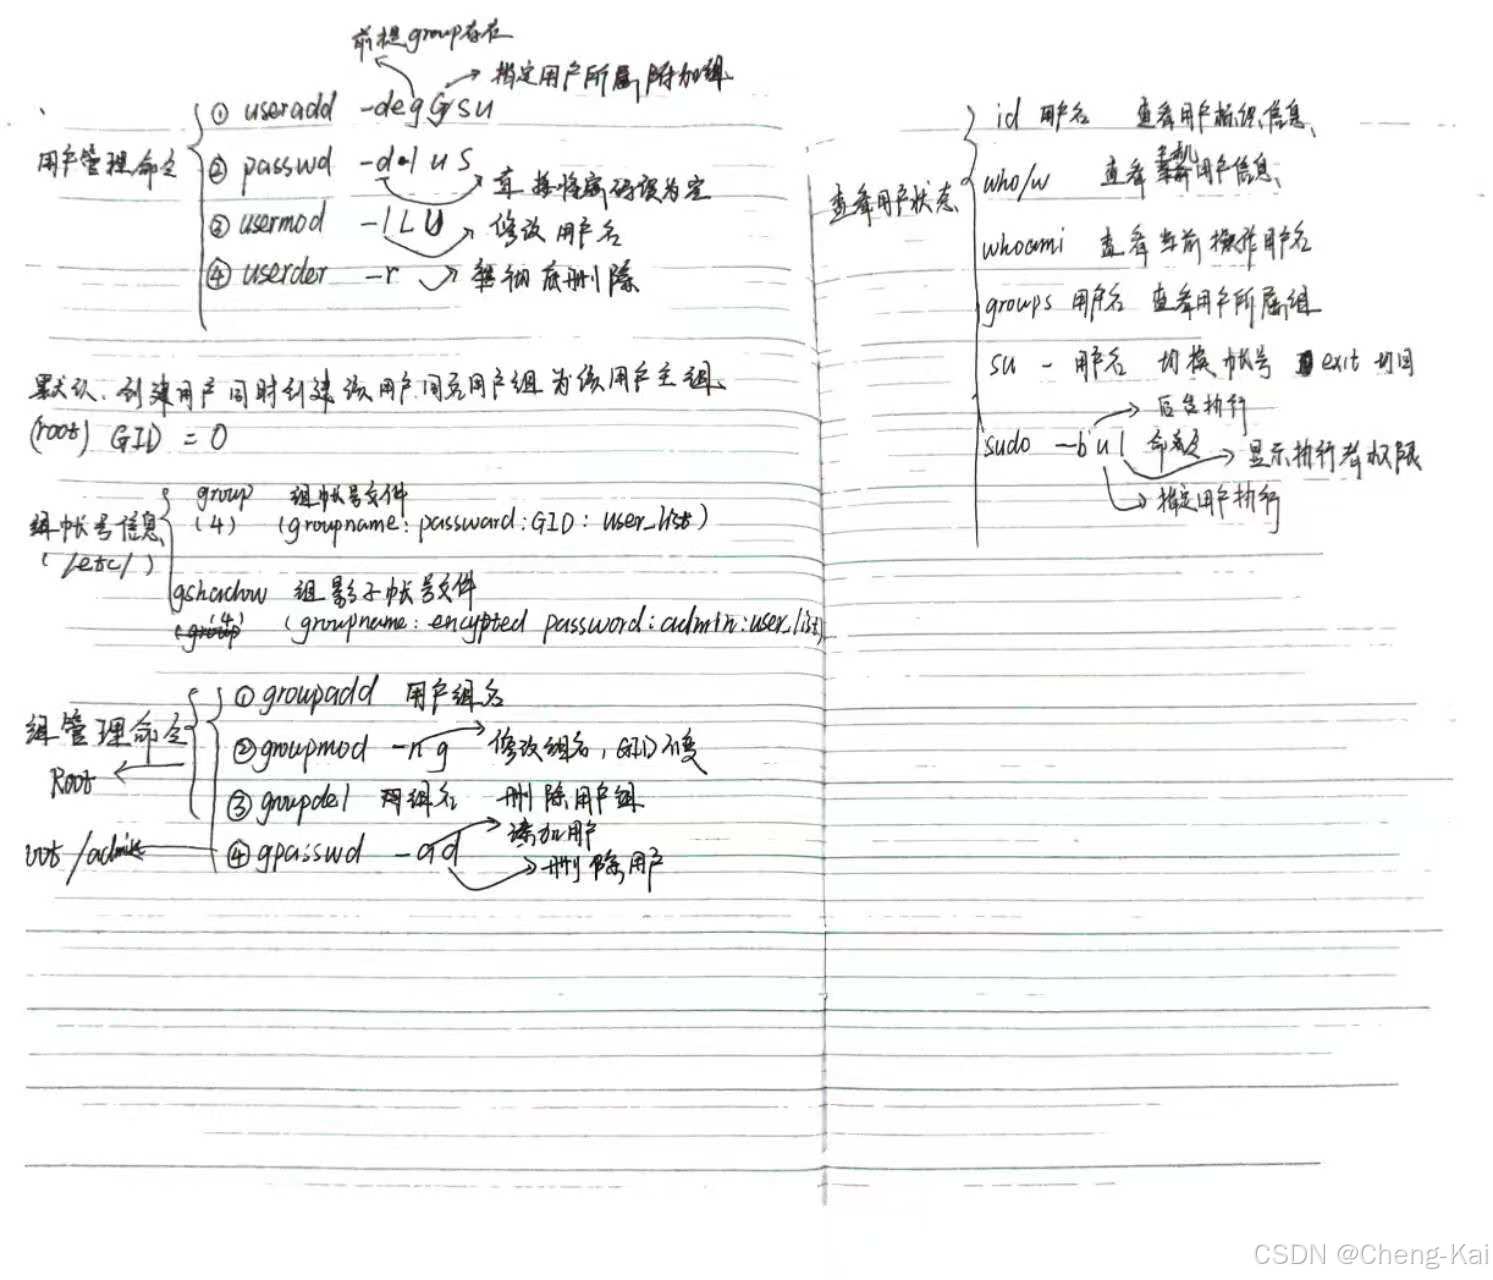 前提group存在
指定用户所属附加组
用户管理命令
① useradd -degGsu
② passwd -dlus
直接将密码设为空
③ usermod -lLU
修改用户名
④ userder -r 彻底删除
默认、创建用户同时创建该用户同名用户组为该用户主组、
(root) GID = 0
组帐号信息
(/etc/)
group 组帐号文件
(4) (groupname: password:GID: user_list)
gshadow 组影子帐号文件
(4)
(groupname: encypted password:admin:user_list)
组管理命令
Root
① groupadd 用户组名
② groupmod -n g 修改组名, GID不变
③ groupdel 组名 删除用户组
/admin
④ gpasswd -ad
添加用户
删除用户
查看用户状态
id 用户名 查看用户标识信息、
who/w 查看主机用户信息、
whoami 查看当前操作用户名
groups 用户名 查看用户所属组
su - 用户名 切换帐号 exit 切回
后台执行
sudo -bul 命令
显示执行者权限
指定用户执行
CSDN @Cheng-Kai